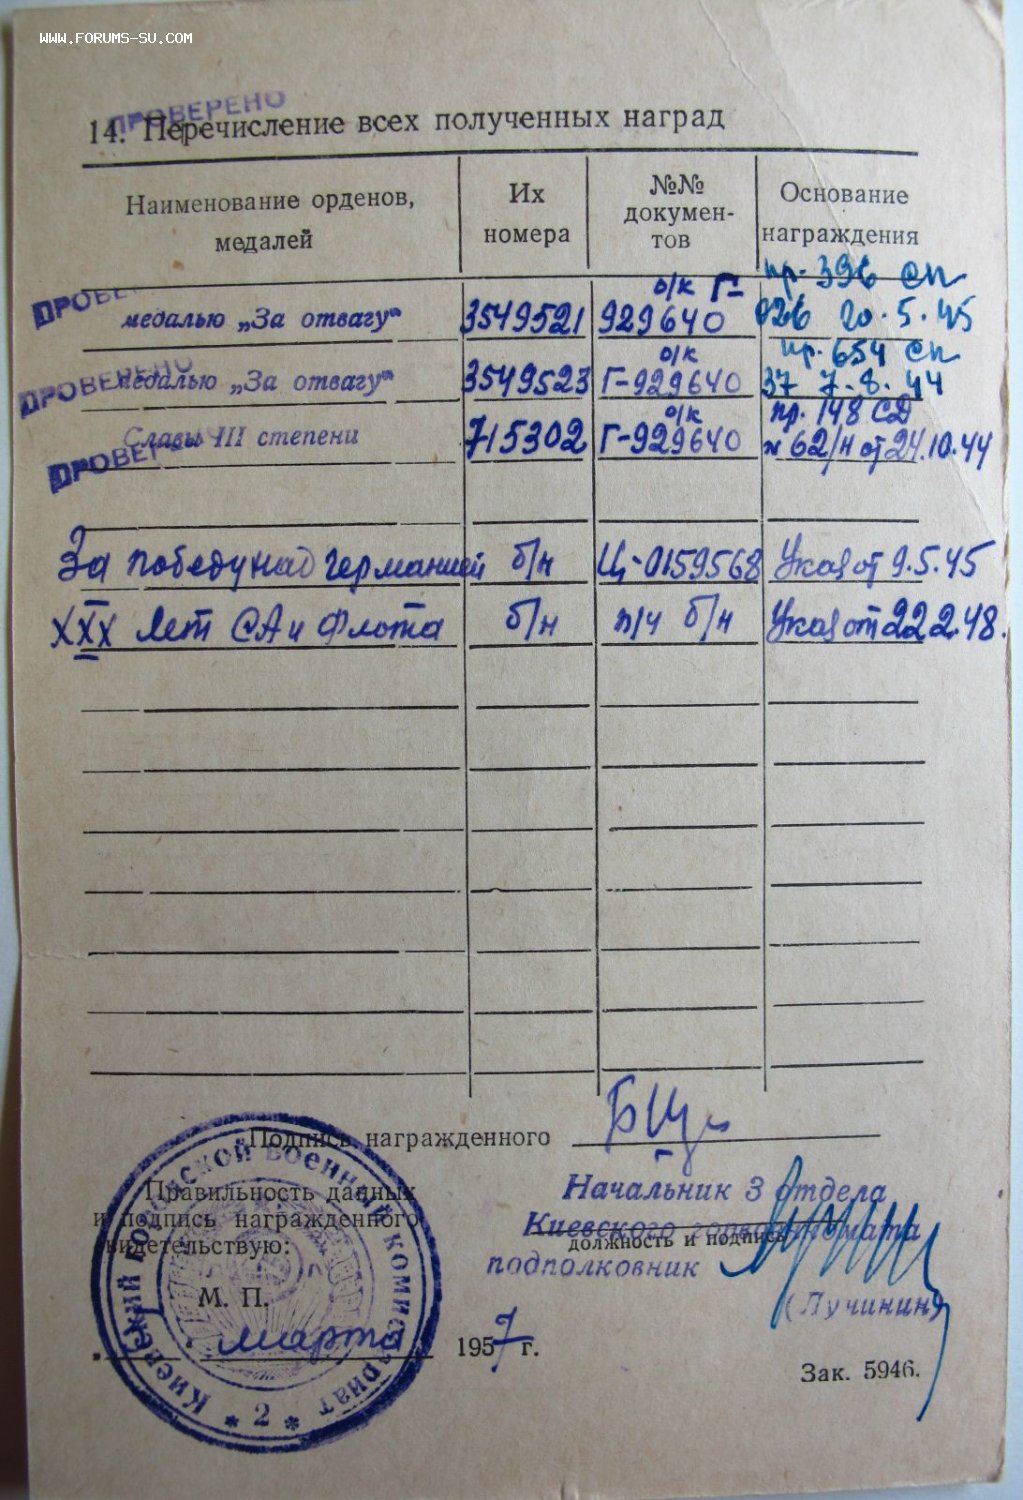 WWW.FORUMS-SU.COM
ПРОВЕРЕНО
14. Перечисление всех полученных наград
Наименование орденов, медалей
Их номера
№№ докумен-
тов
Основание награждения
пр. 396 сп
ПРОВЕРЕ
медалью „За отвагу“ 3549521 о/к Г-
929640 026 20.5.45
пр. 654 сп
ПРОВЕРЕНО
медалью „За отвагу“ 3549523 о/к
Г-929640 37 7.8.44
пр. 148 СД
ПРОВЕРЕНО
Славы III степени 715302 о/к
Г-929640 № 62/н от 24.10.44
За победу над германией б/н Ц-0159568 Указ от 9.5.45
XXX лет СА и Флота б/н п/ч б/н Указ от 22.2.48.
Подпись награжденного
Правильность данных
и подпись награжденного
свидетельствую:
М. П.
Начальник 3 отдела
Киевского горвоенкомата
должность и подпись
подполковник
(Лучинин)
марта 1957 г.
Зак. 5946.
Киевский городской военный комиссариат
* 2 *